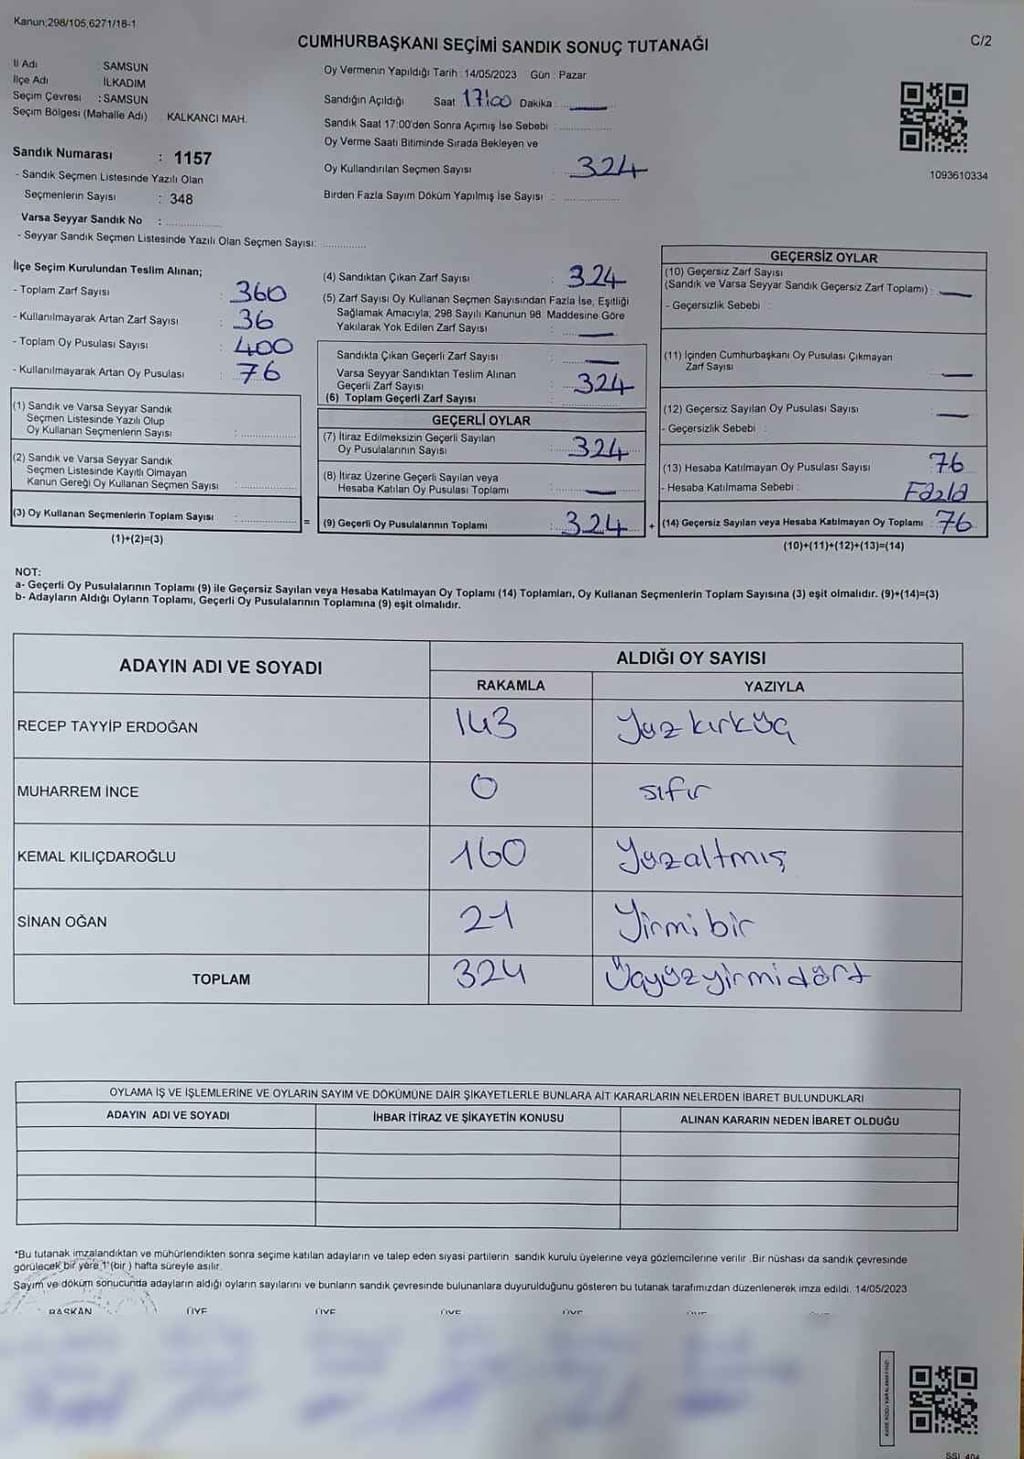 Kanun;298/105,6271/18-1
CUMHURBAŞKANI SEÇİMİ SANDIK SONUÇ TUTANAĞI
C/2
İl Adı SAMSUN
İlçe Adı İLKADIM
Seçim Çevresi : SAMSUN
Seçim Bölgesi (Mahalle Adı) KALKANCI MAH.
Sandık Numarası : 1157
- Sandık Seçmen Listesinde Yazılı Olan
Seçmenlerin Sayısı : 348
Varsa Seyyar Sandık No :
- Seyyar Sandık Seçmen Listesinde Yazılı Olan Seçmen Sayısı:
Oy Vermenin Yapıldığı Tarih : 14/05/2023 Gün : Pazar
Sandığın Açıldığı Saat 17:00 Dakika :
Sandık Saat 17:00'den Sonra Açımış İse Sebebi :
Oy Verme Saati Bitiminde Sırada Bekleyen ve
Oy Kullandırılan Seçmen Sayısı : 324
Birden Fazla Sayım Döküm Yapılmış İse Sayısı :
1093610334
İlçe Seçim Kurulundan Teslim Alınan;
- Toplam Zarf Sayısı : 360
- Kullanılmayarak Artan Zarf Sayısı : 36
- Toplam Oy Pusulası Sayısı : 400
- Kullanılmayarak Artan Oy Pusulası : 76
(1) Sandık ve Varsa Seyyar Sandık
Seçmen Listesinde Yazılı Olup
Oy Kullanan Seçmenlerin Sayısı :
(2) Sandık ve Varsa Seyyar Sandık
Seçmen Listesinde Kayıtlı Olmayan
Kanun Gereği Oy Kullanan Seçmen Sayısı :
(3) Oy Kullanan Seçmenlerin Toplam Sayısı :
(1)+(2)=(3)
=
(4) Sandıktan Çıkan Zarf Sayısı : 324
(5) Zarf Sayısı Oy Kullanan Seçmen Sayısından Fazla İse, Eşitliği
Sağlamak Amacıyla, 298 Sayılı Kanunun 98. Maddesine Göre
Yakılarak Yok Edilen Zarf Sayısı : —
Sandıkta Çıkan Geçerli Zarf Sayısı : —
Varsa Seyyar Sandıktan Teslim Alınan
Geçerli Zarf Sayısı : 324
(6) Toplam Geçerli Zarf Sayısı
GEÇERLİ OYLAR
(7) İtiraz Edilmeksizin Geçerli Sayılan
Oy Pusulalarının Sayısı : 324
(8) İtiraz Üzerine Geçerli Sayılan veya
Hesaba Katılan Oy Pusulası Toplamı : —
(9) Geçerli Oy Pusulalarının Toplamı : 324
+
GEÇERSİZ OYLAR
(10) Geçersiz Zarf Sayısı
(Sandık ve Varsa Seyyar Sandık Geçersiz Zarf Toplamı) : —
- Geçersizlik Sebebi :
(11) İçinden Cumhurbaşkanı Oy Pusulası Çıkmayan
Zarf Sayısı : —
(12) Geçersiz Sayılan Oy Pusulası Sayısı : —
- Geçersizlik Sebebi :
(13) Hesaba Katılmayan Oy Pusulası Sayısı 76
- Hesaba Katılmama Sebebi : Fazla
(14) Geçersiz Sayılan veya Hesaba Katılmayan Oy Toplamı : 76
(10)+(11)+(12)+(13)=(14)
NOT:
a- Geçerli Oy Pusulalarının Toplamı (9) ile Geçersiz Sayılan veya Hesaba Katılmayan Oy Toplamı (14) Toplamları, Oy Kullanan Seçmenlerin Toplam Sayısına (3) eşit olmalıdır. (9)+(14)=(3)
b- Adayların Aldığı Oyların Toplamı, Geçerli Oy Pusulalarının Toplamına (9) eşit olmalıdır.
ADAYIN ADI VE SOYADI
ALDIĞI OY SAYISI
RAKAMLA YAZIYLA
RECEP TAYYİP ERDOĞAN 143 Yüz kırküç
MUHARREM İNCE 0 sıfır
KEMAL KILIÇDAROĞLU 160 Yüzaltmış
SİNAN OĞAN 21 Yirmi bir
TOPLAM 324 Üçyüzyirmidört
OYLAMA İŞ VE İŞLEMLERİNE VE OYLARIN SAYIM VE DÖKÜMÜNE DAİR ŞİKAYETLERLE BUNLARA AİT KARARLARIN NELERDEN İBARET BULUNDUKLARI
ADAYIN ADI VE SOYADI İHBAR İTİRAZ VE ŞİKAYETİN KONUSU ALINAN KARARIN NEDEN İBARET OLDUĞU
*Bu tutanak imzalandıktan ve mühürlendikten sonra seçime katılan adayların ve talep eden siyasi partilerin sandık kurulu üyelerine veya gözlemcilerine verilir. Bir nüshası da sandık çevresinde
görülecek bir yere 1 (bir) hafta süreyle asılır.
Sayım ve döküm sonucunda adayların aldığı oyların sayılarını ve bunların sandık çevresinde bulunanlara duyurulduğunu gösteren bu tutanak tarafımızdan düzenlenerek imza edildi. 14/05/2023
BAŞKAN ÜYE ÜYE ÜYE ÜYE